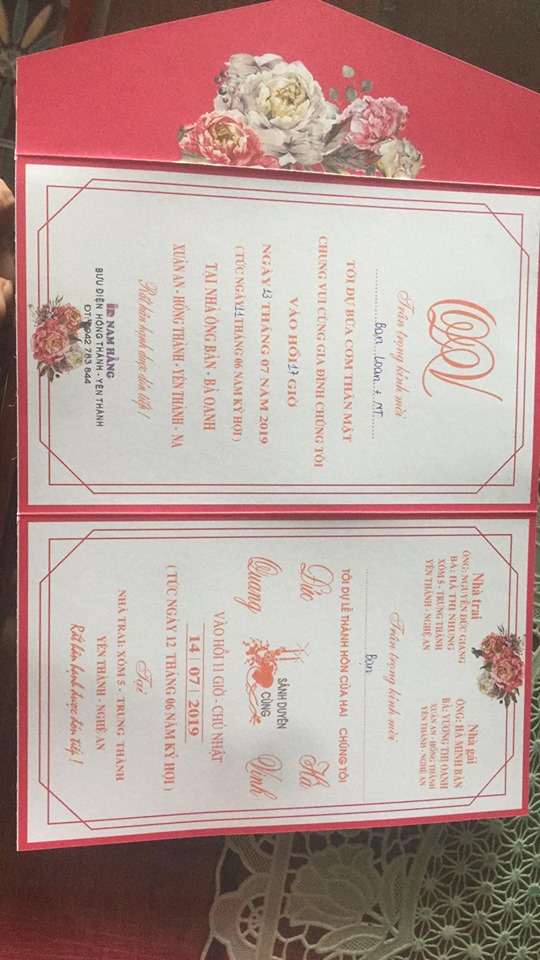 QV
Trân trọng kính mời
Bạn Loan + NT
TỚI DỰ BỮA CƠM THÂN MẬT
CHUNG VUI CÙNG GIA ĐÌNH CHÚNG TÔI
VÀO HỒI 17 GIỜ
NGÀY 13 THÁNG 07 NĂM 2019
( TỨC NGÀY 11 THÁNG 06 NĂM KỶ HỢI )
TẠI NHÀ ÔNG BÀN - BÀ OANH
XUÂN AN - HỒNG THÀNH - YÊN THÀNH - NA
Rất hân hạnh được đón tiếp !
NAM HẰNG
BƯU ĐIỆN HỒNG THÀNH - YÊN THÀNH
ĐT: 0942 783 844
Nhà trai
ÔNG: NGUYỄN ĐỨC GIANG
BÀ: HÀ THỊ NHUNG
XÓM 5 - TRUNG THÀNH
YÊN THÀNH - NGHỆ AN
Nhà gái
ÔNG: HÀ MINH BÀN
BÀ: VƯƠNG THỊ OANH
XUÂN AN - HỒNG THÀNH
YÊN THÀNH - NGHỆ AN
Trân trọng kính mời
Bạn
TỚI DỰ LỄ THÀNH HÔN CỦA HAI CHÚNG TÔI
Đức Quang
SÁNH DUYÊN
CÙNG
Hà Vinh
VÀO HỒI 11 GIỜ - CHỦ NHẬT
14 | 07 | 2019
( TỨC NGÀY 12 THÁNG 06 NĂM KỶ HỢI )
Tại
NHÀ TRAI: XÓM 5 - TRUNG THÀNH
YÊN THÀNH - NGHỆ AN
Rất hân hạnh được đón tiếp !